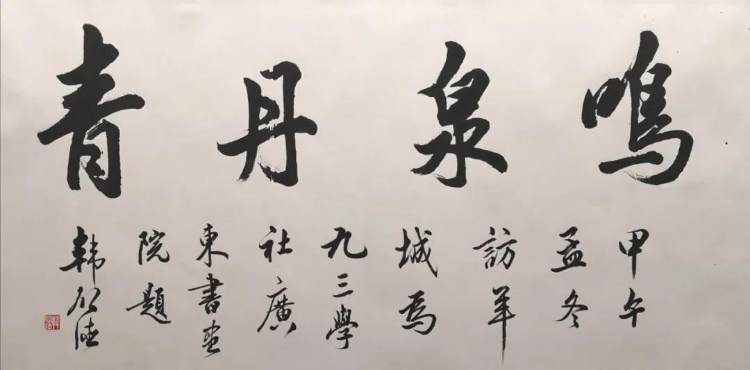 鳴泉丹青
甲午
孟冬
訪羊
城為
九三學
社廣
東書畫
院題
韓启德